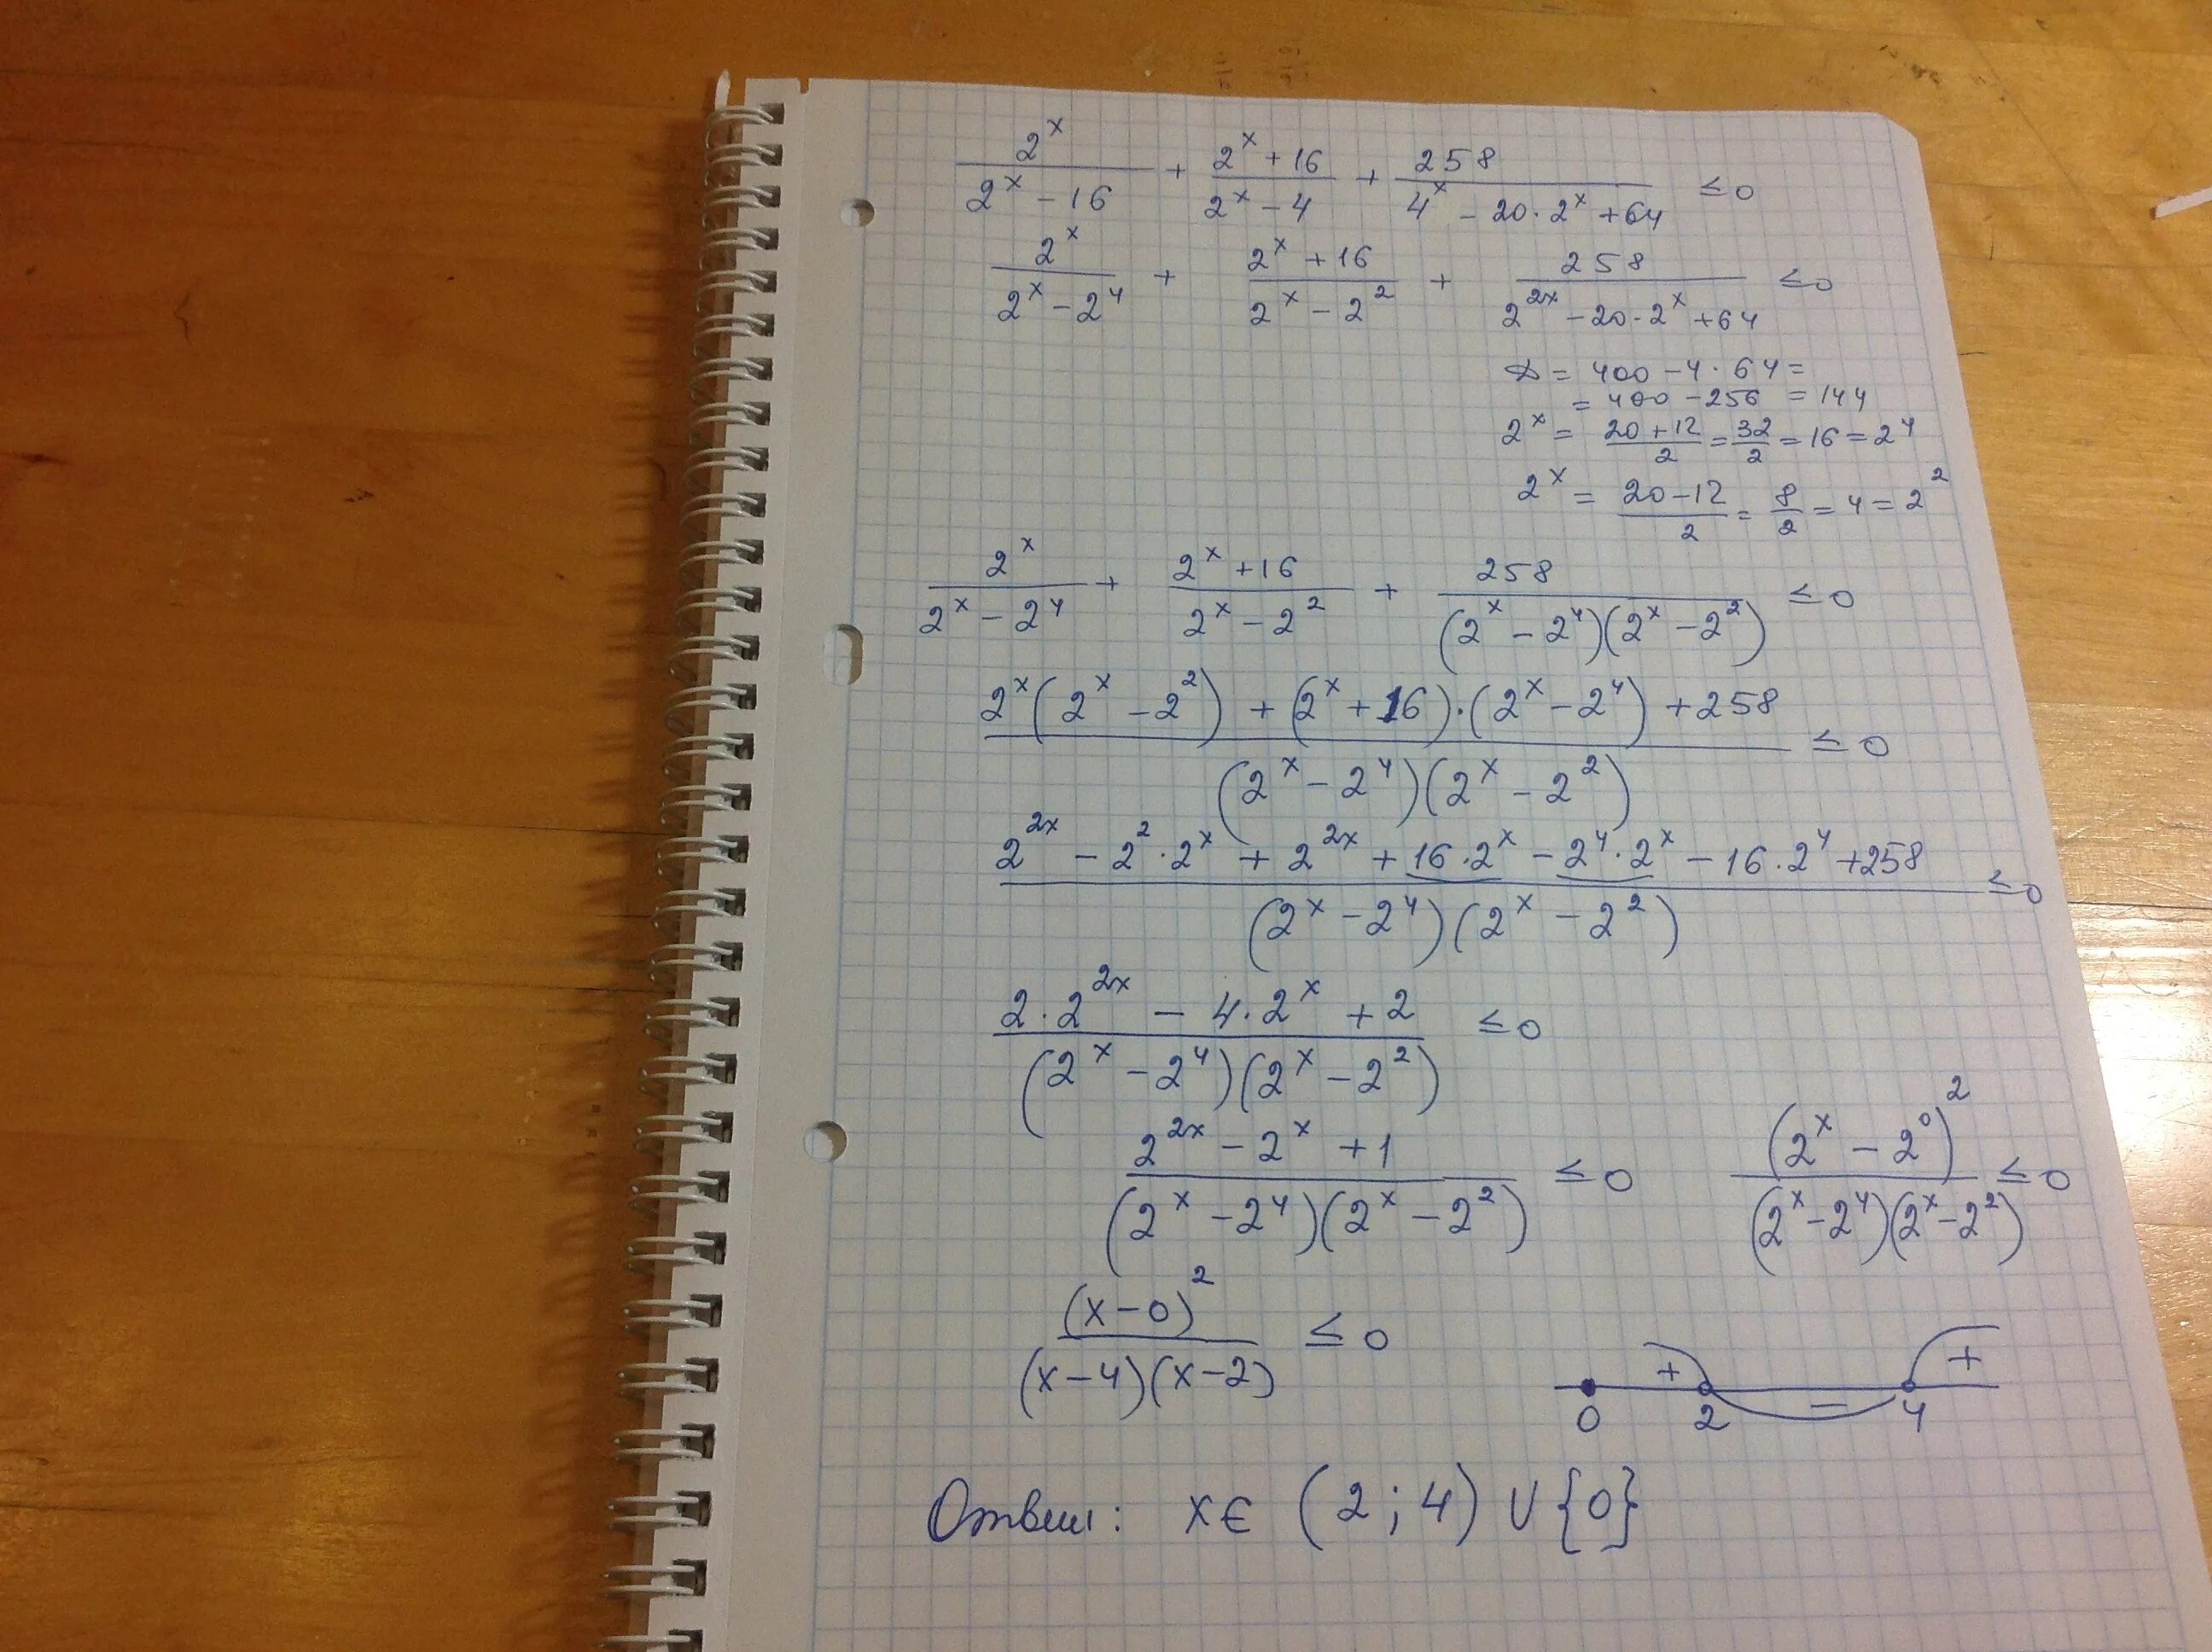 2^x/(2^x - 16) + (2^x + 16)/(2^x - 4) + 258/(4^x - 20·2^x + 64) ≤ 0
2^x/(2^x - 2^4) + (2^x + 16)/(2^x - 2^2) + 258/(2^{2x} - 20·2^x + 64) ≤ 0
D = 400 - 4·64 =
= 400 - 256 = 144
2^x = (20 + 12)/2 = 32/2 = 16 = 2^4
2^x = (20 - 12)/2 = 8/2 = 4 = 2^2
2^x/(2^x - 2^4) + (2^x + 16)/(2^x - 2^2) + 258/((2^x - 2^4)(2^x - 2^2)) ≤ 0
(2^x(2^x - 2^2) + (2^x + 16)·(2^x - 2^4) + 258)/((2^x - 2^4)(2^x - 2^2)) ≤ 0
(2^{2x} - 2^2·2^x + 2^{2x} + 16·2^x - 2^4·2^x - 16·2^4 + 258)/((2^x - 2^4)(2^x - 2^2)) ≤ 0
(2·2^{2x} - 4·2^x + 2)/((2^x - 2^4)(2^x - 2^2)) ≤ 0
(2^{2x} - 2^x + 1)/((2^x - 2^4)(2^x - 2^2)) ≤ 0 (2^x - 2^0)^2/((2^x - 2^4)(2^x - 2^2)) ≤ 0
(x - 0)^2/((x - 4)(x - 2)) ≤ 0
+ − +
0 2 4
Ответ: x ∈ (2; 4) ∪ {0}